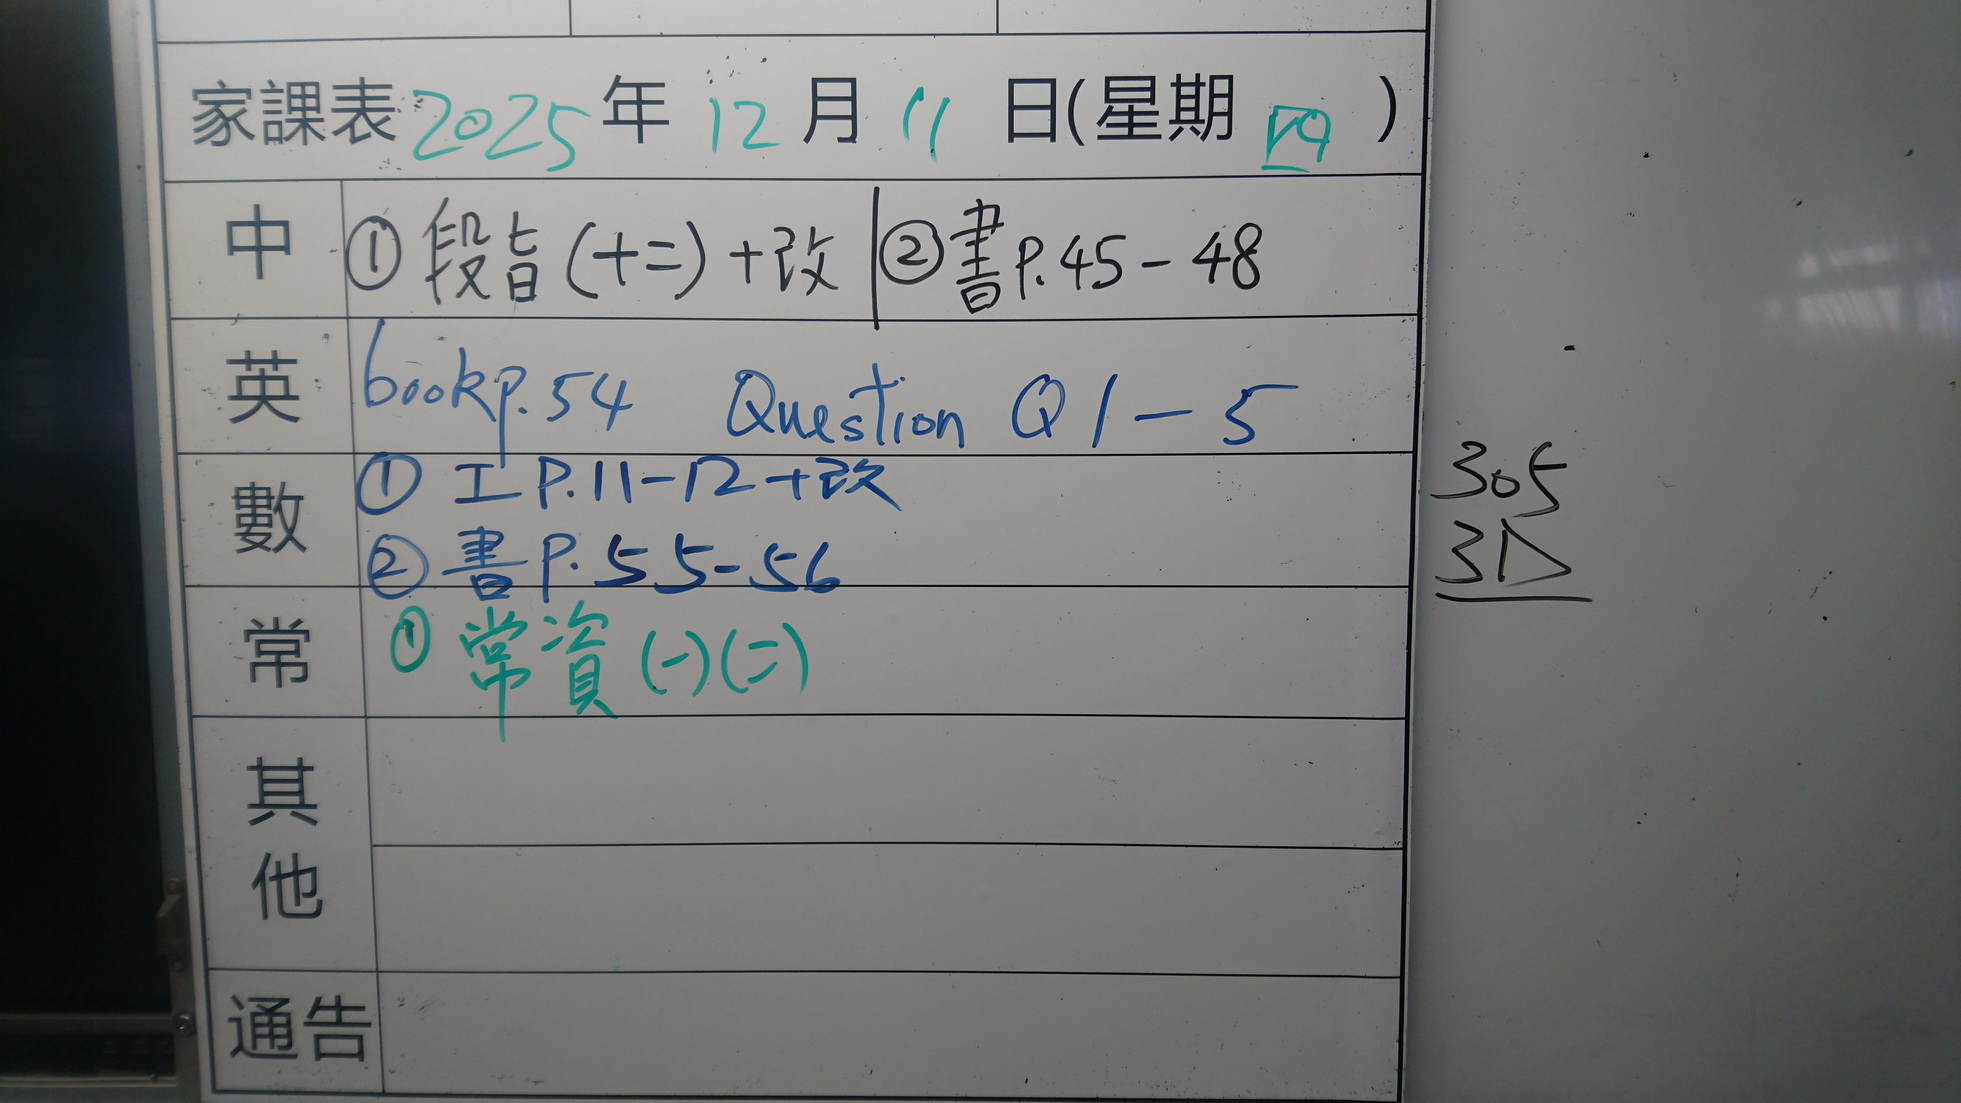 家課表 2025 年 12 月 11 日(星期 四 )
中 ① 段旨(十二)+改 ② 書 P.45-48
英 book p.54 Question Q1-5
數 ① 工 P.11-12+改
② 書 P.55-56
常 ① 常資(一)(二)
其他
通告
305
3D